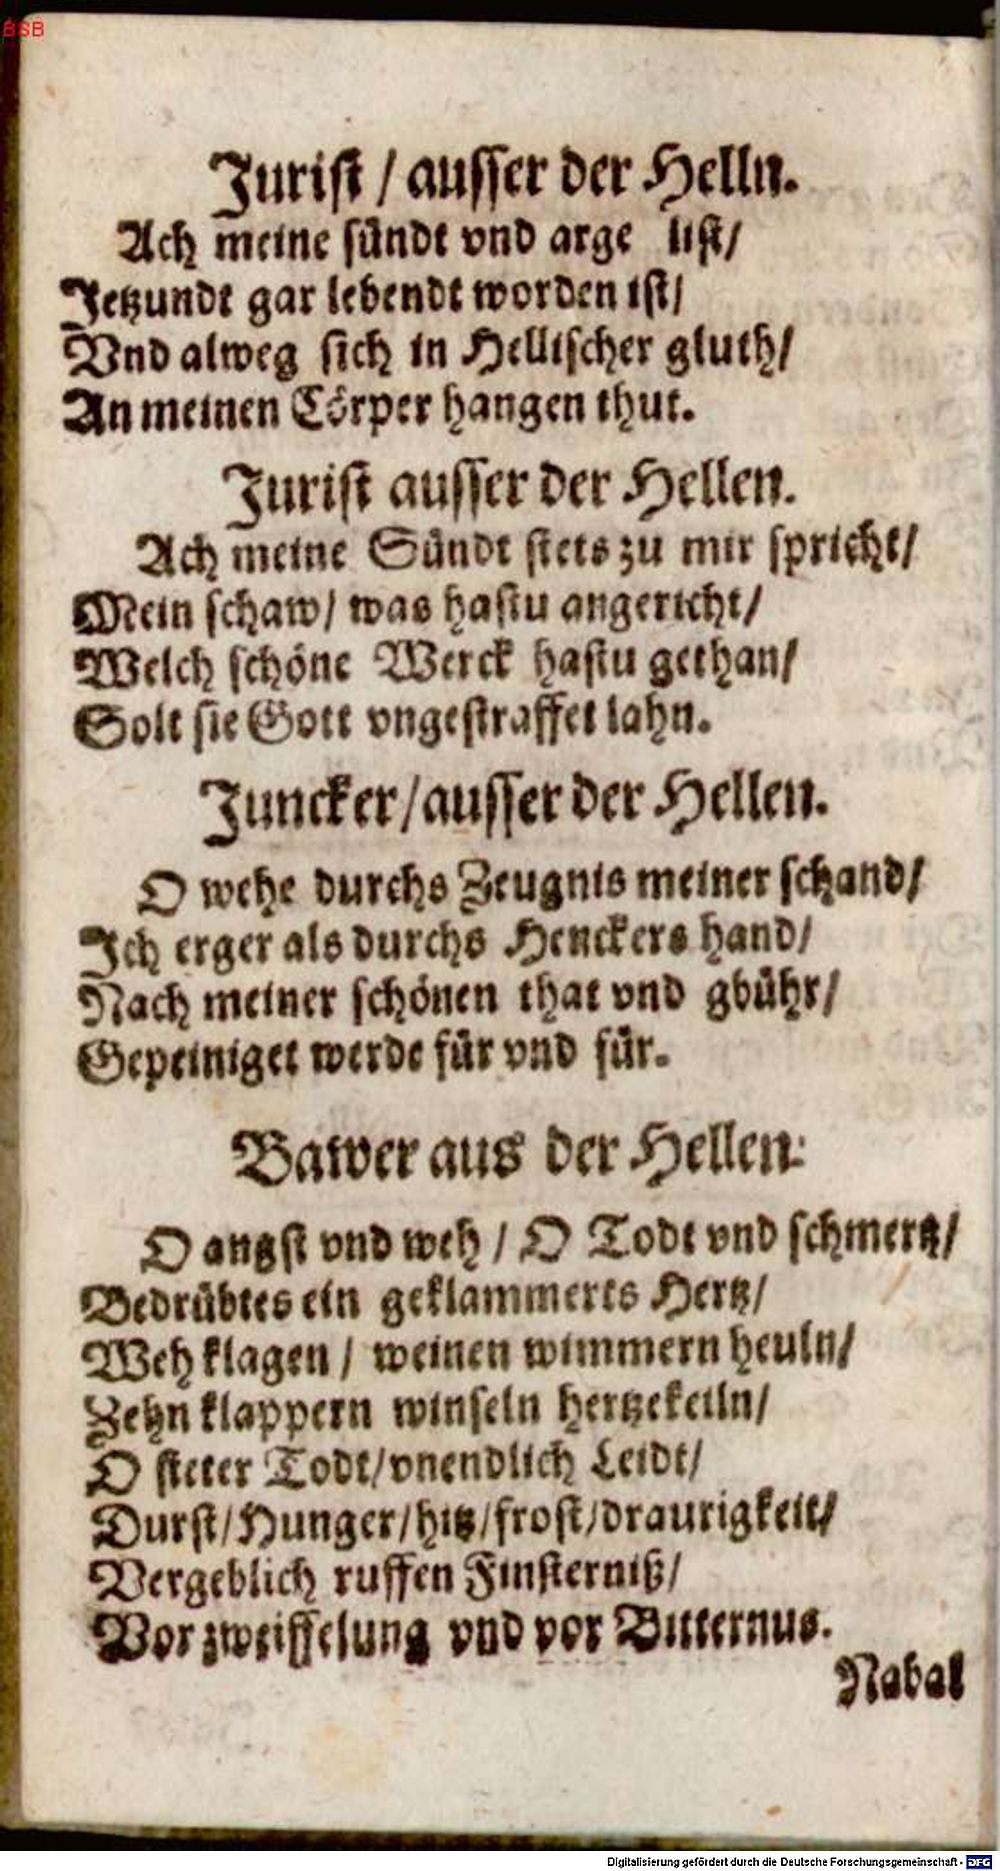 BSB
Jurist / ausser der Helln.
Ach meine sündt vnd arge list/
Jetzundt gar lebendt worden ist/
Vnd alweg sich in Hellischer gluth/
An meinen Cörper hangen thut.
Jurist ausser der Hellen.
Ach meine Sündt stets zu mir spricht/
Mein schaw/ was hastu angericht/
Welch schöne Werck hastu gethan/
Solt sie Gott vngestraffet lahn.
Juncker/ausser der Hellen.
O wehe durchs Zeugnis meiner schand/
Ich erger als durchs Henckers hand/
Nach meiner schönen that vnd gbühr/
Gepeiniget werde für vnd für.
Bawer aus der Hellen:
O angst vnd weh / O Todt vnd schmertz/
Bedrübtes ein geklammerts Hertz/
Weh klagen / weinen wimmern heuln/
Zehn klappern winseln hertzekeiln/
O steter Todt/vnendlich Leidt/
Durst/Hunger/hitz/frost/draurigkeit/
Vergeblich ruffen Finsterniß/
Vor zweiffelung vnd vor Bitternus.
Nabal
Digitalisierung gefördert durch die Deutsche Forschungsgemeinschaft - DFG